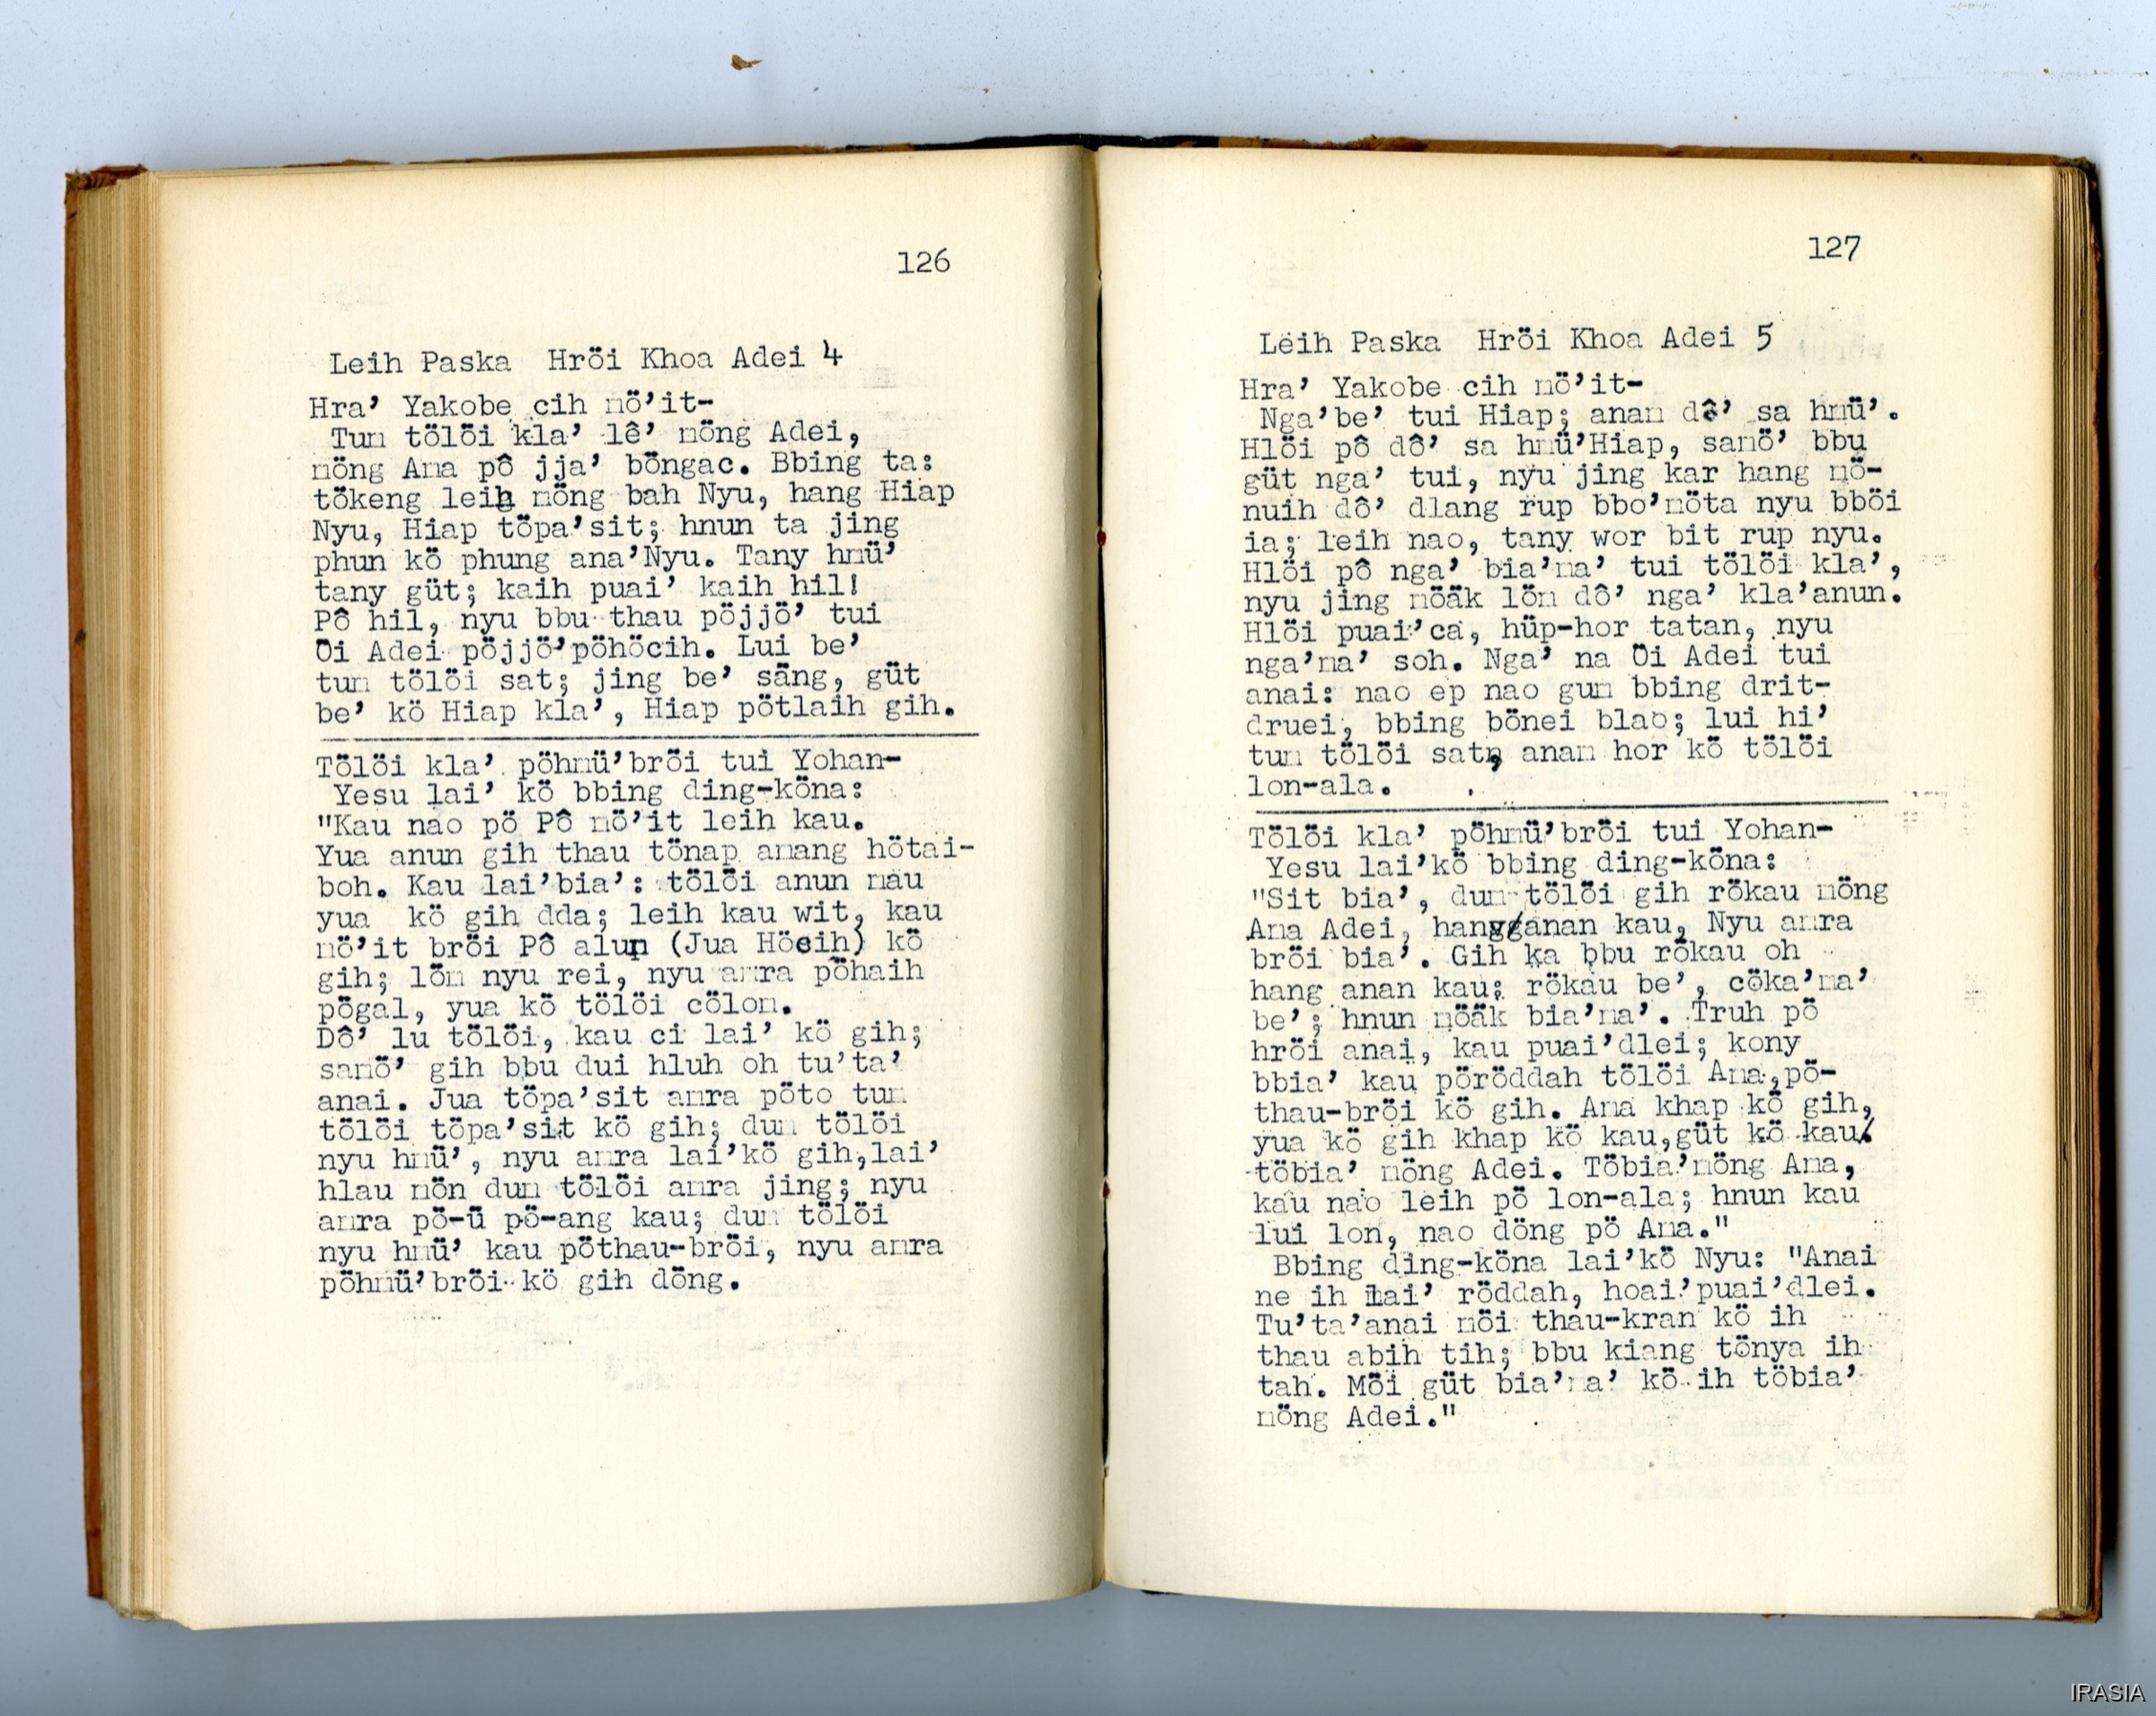 126
Leih Paska Hröi Khoa Adei 4
Hra’ Yakobe cih mö’it-
Tum tölöi kla’ lê’ möng Adei,
möng Ama pô jja’ böngac. Bbing ta:
tökeng leih möng bah Nyu, hang Hiap
Nyu, Hiap töpa’sit; hnun ta jing
phun kö phung ana’Nyu. Tany hmü’
tany güt; kaih puai’ kaih hil!
Pô hil, nyu bbu thau pöjjö’ tui
Öi Adei pöjjö’pöhöcih. Lui be’
tum tölöi sat; jing be’ säng, güt
be’ kö Hiap kla’, Hiap pötlaih gih.
Tölöi kla’ pöhmü’bröi tui Yohan-
Yesu lai’ kö bbing ding-köna:
"Kau nao pö Pô mö’it leih kau.
Yua anun gih thau tönap amang hötai-
boh. Kau lai’bia’: tölöi anun mau
yua kö gih dda; leih kau wit, kau
mö’it bröi Pô alum (Jua Höcih) kö
gih; löm nyu rei, nyu amra pöhaih
pögal, yua kö tölöi cölom.
Dô’ lu tölöi, kau ci lai’ kö gih;
samö’ gih bbu dui hluh oh tu’ta’
anai. Jua töpa’sit amra pöto tum
tölöi töpa’sit kö gih; dum tölöi
nyu hmü’, nyu amra lai’kö gih,lai’
hlau mön dum tölöi amra jing; nyu
amra pö-ü pö-ang kau; dum tölöi
nyu hmü’ kau pöthau-bröi, nyu amra
pöhmü’bröi kö gih döng.
127
Leih Paska Hröi Khoa Adei 5
Hra’ Yakobe cih mö’it-
Nga’be’ tui Hiap; anam dô’ sa hmü’.
Hlöi pô dô’ sa hmü’Hiap, samö’ bbu
güt nga’ tui, nyu jing kar hang mö-
nuih dô’ dlang rup bbo’möta nyu bböi
ia; leih nao, tany wor bit rup nyu.
Hlöi pô nga’ bia’ma’ tui tölöi kla’,
nyu jing möäk löm dô’ nga’ kla’anun.
Hlöi puai’ca, hüp-hor tatan, nyu
nga’ma’ soh. Nga’ na Öi Adei tui
anai: nao ep nao gum bbing drit-
druei, bbing bönei blao; lui hi’
tum tölöi sat, anam hor kö tölöi
lon-ala.
Tölöi kla’ pöhmü’bröi tui Yohan-
Yesu lai’kö bbing ding-köna:
"Sit bia’, dum tölöi gih rökau möng
Ama Adei, hang anan kau, Nyu amra
bröi bia’. Gih ka bbu rökau oh
hang anan kau; rökau be’, cöka’ma’
be’; hnun möäk bia’ma’. Truh pö
hröi anai, kau puai’dlei; kony
bbia’ kau pöröddah tölöi Ama,pö-
thau-bröi kö gih. Ama khap kö gih,
yua kö gih khap kö kau,güt kö kau
töbia’ möng Adei. Töbia’möng Ama,
kau nao leih pö lon-ala; hnun kau
lui lon, nao döng pö Ama."
Bbing ding-köna lai’kö Nyu: "Anai
ne ih lai’ röddah, hoai’puai’dlei.
Tu’ta’anai möi thau-kran kö ih
thau abih tih; bbu kiang tönya ih
tah. Möi güt bia’ma’ kö ih töbia’
möng Adei."
IRASIA